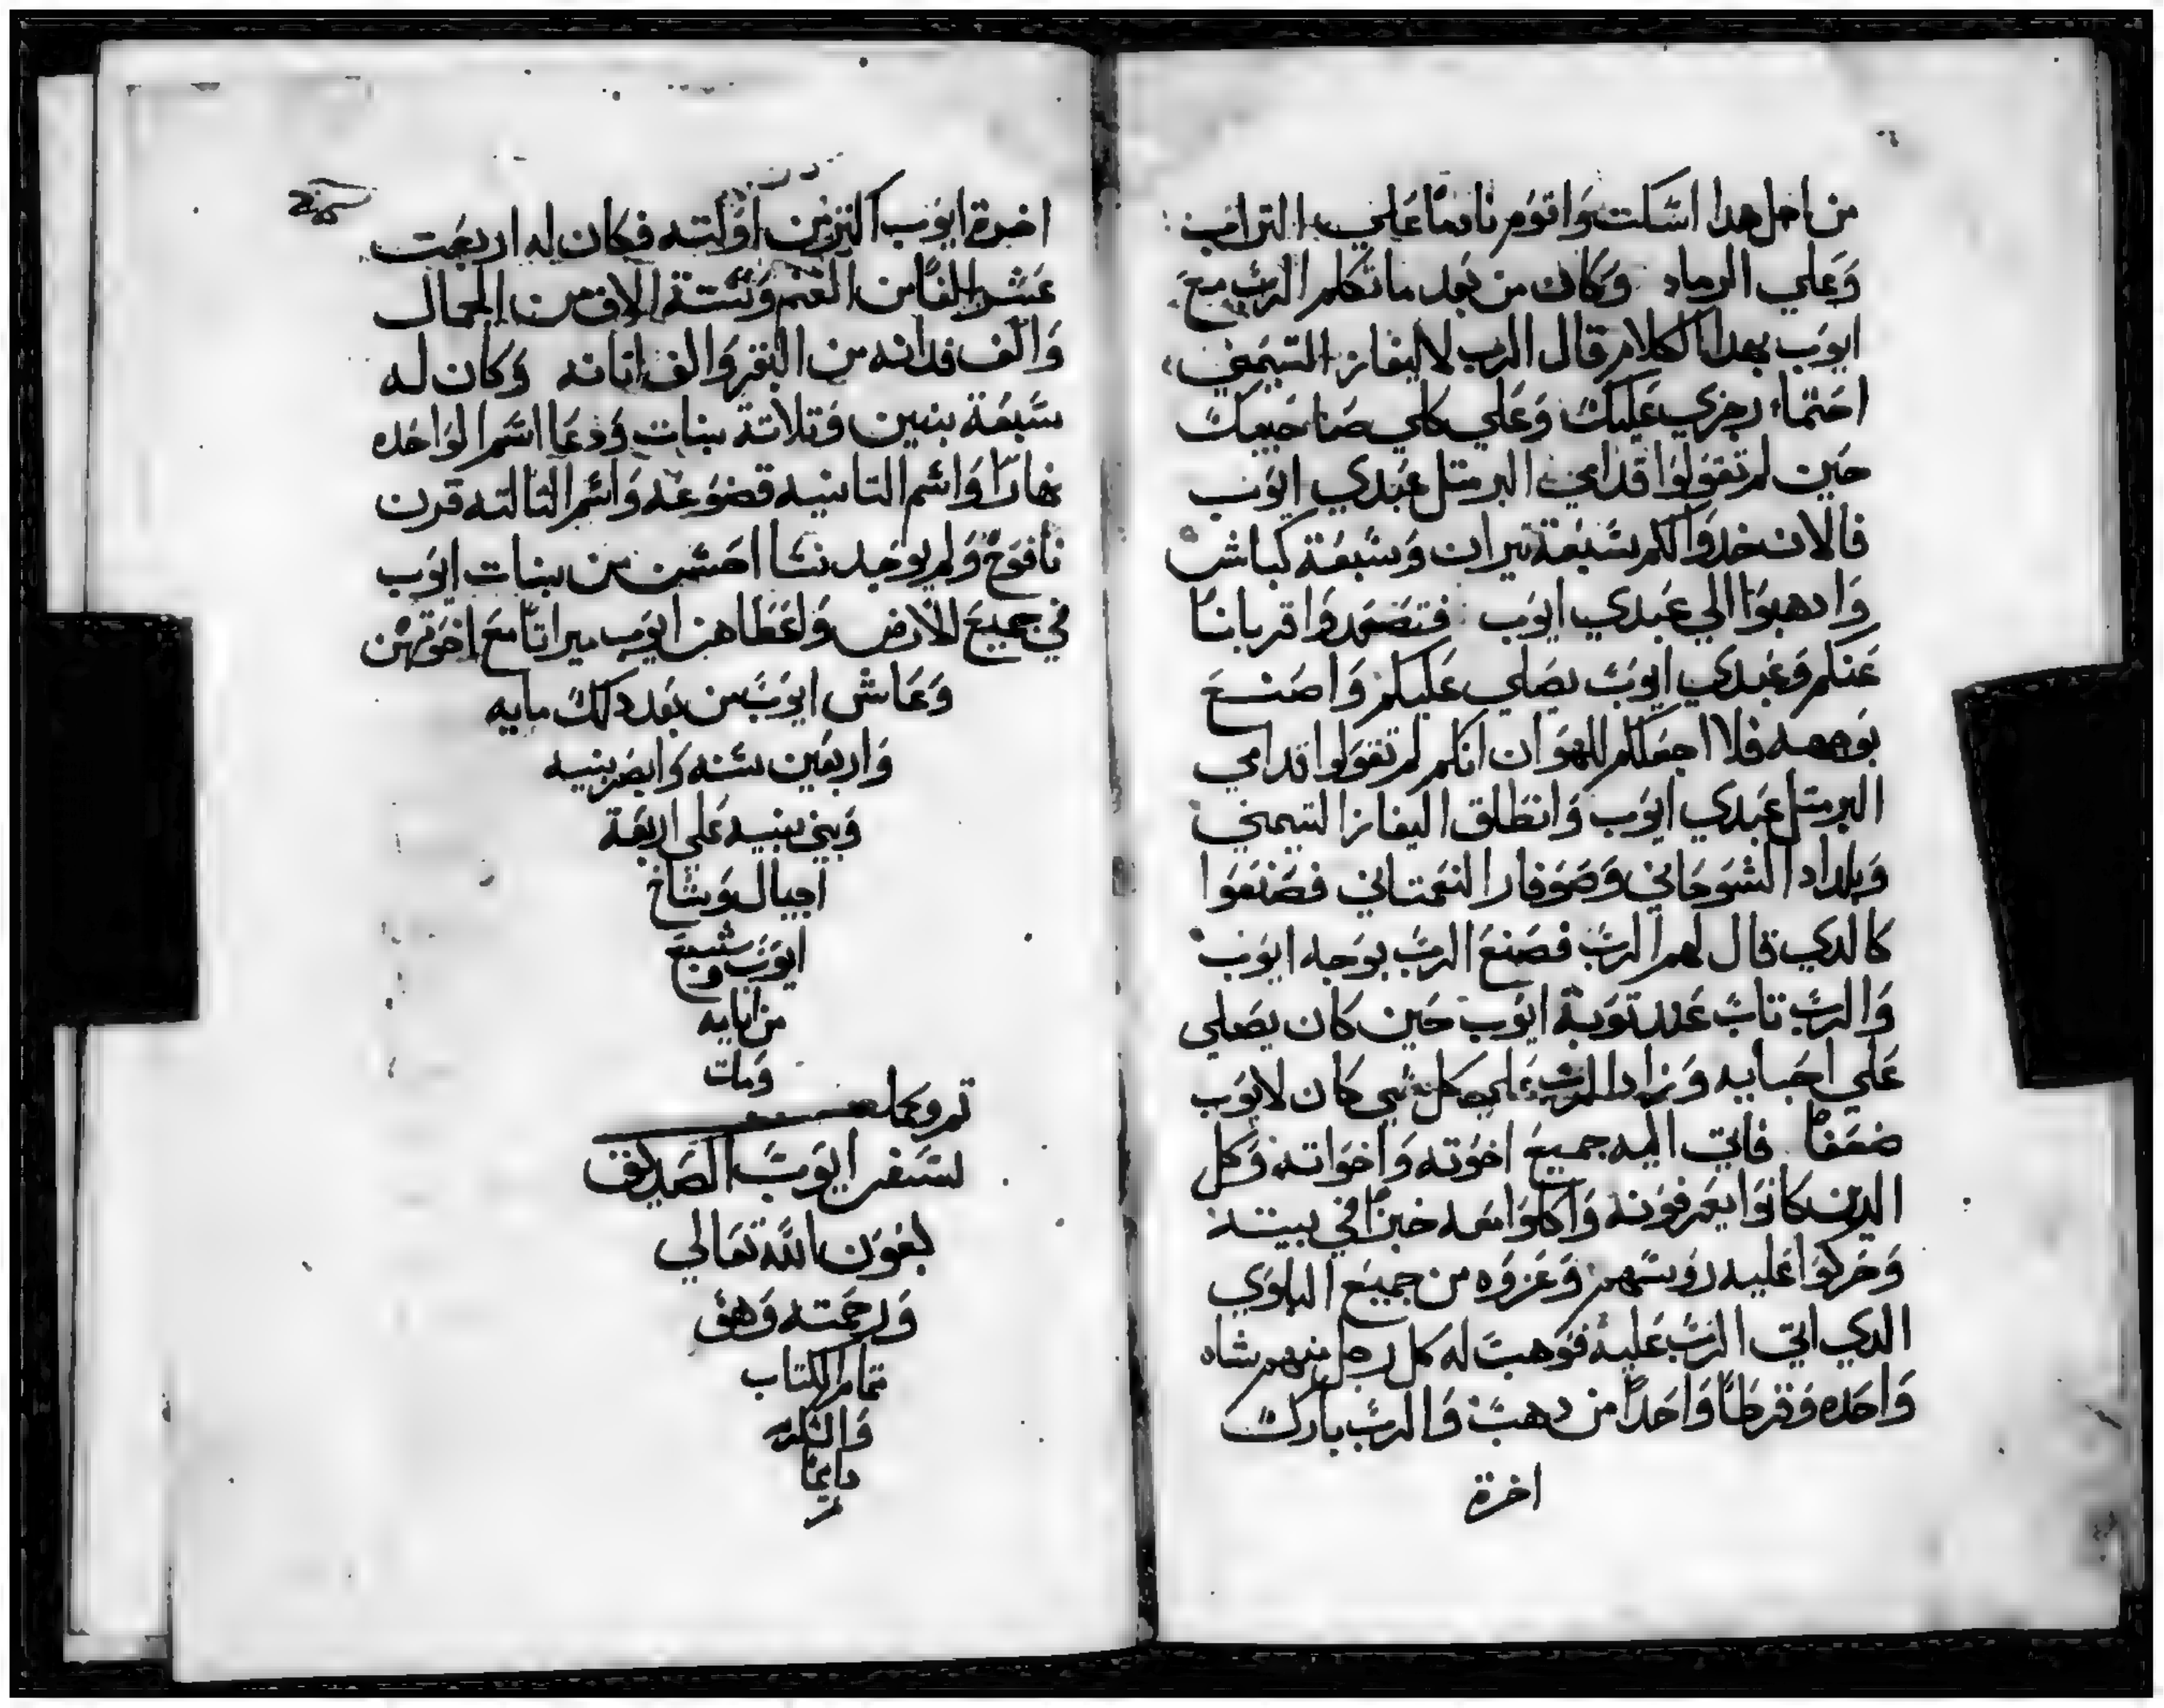 من اجل هدا اسكت واقوم نادما علي التراب
وعلي الرماد وكان من بعد ما تكلم الرب مع
ايوب بهدا الكلام قال الرب لاليفاز التيمني
احتما رجزي عليك وعلي كلي صاحبيك
حين لم تقولوا قدامي البر متل عبدي ايوب
فالان خدوا لكم سبعة تيران وسبعة كباش
وادهبوا الي عبدي ايوب فتصعدوا قربانا
عنكم وعبدي ايوب يصلي عليكم واصنع
بوجهه فلا اجعلكم للهوان انكم لم تقولوا قدامي
البر متل عبدي ايوب وانطلق اليفاز التيمني
وبلداد الشوحاني وصوفار النعمتاني فصنعوا
كالدي قال لهم الرب فصنع الرب بوجه ايوب
والرب تاب عند توبة ايوب حين كان يصلي
علي احبايه وزاد الرب علي كل شي كان لايوب
ضعفا فاتي اليه جميع اخوته واخواته وكل
الدين كانوا يعرفونه واكلوا معه خبزا في بيته
وحركوا عليه روسهم وعزوه من جميع البلوي
الدي اتي الرب عليه فوهب له كل رجل منهم شاه
واحده وقرطا واحدا من دهب والرب بارك
اخرة
اخرة ايوب اكتر من اولته فكان له اربعت
عشر الفا من الغنم وستة الاف من الجمال
والف فدانه من البقر والف اتانه وكان له
سبعة بنين وتلاتة بنات ودعا اسم الواحده
نهارا واسم التانيه قضوعه واسم التالته قرن
نافوخ ولم يوجد نسا احسن من بنات ايوب
في جميع الارض واعطاهن ايوب ميراتا مع اخوتهن
وعاش ايوب من بعد دلك مايه
واربعين سنه وابصر بنيه
وبني بنيه علي اربعة
اجيال وشاخ
ايوب وشبع
من ايامه
ومات
تم وكمل
سفر ايوب الصديق
بعون الله تعالي
ورحمته وهو
تمام الكتاب
والشكر لله
دايما